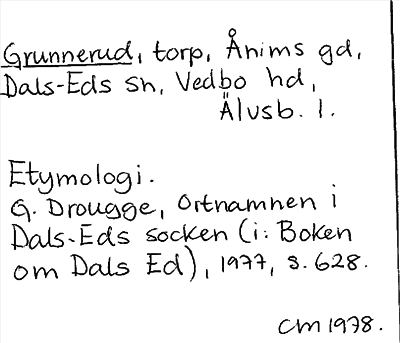 Grunnerud, torp, Ånims gd,
Dals-Eds sn, Vedbo hd,
Älvsb. l.
Etymologi.
G. Drougge, Ortnamnen i
Dals-Eds socken (i: Boken
om Dals Ed), 1977, s. 628.
CM 1978.